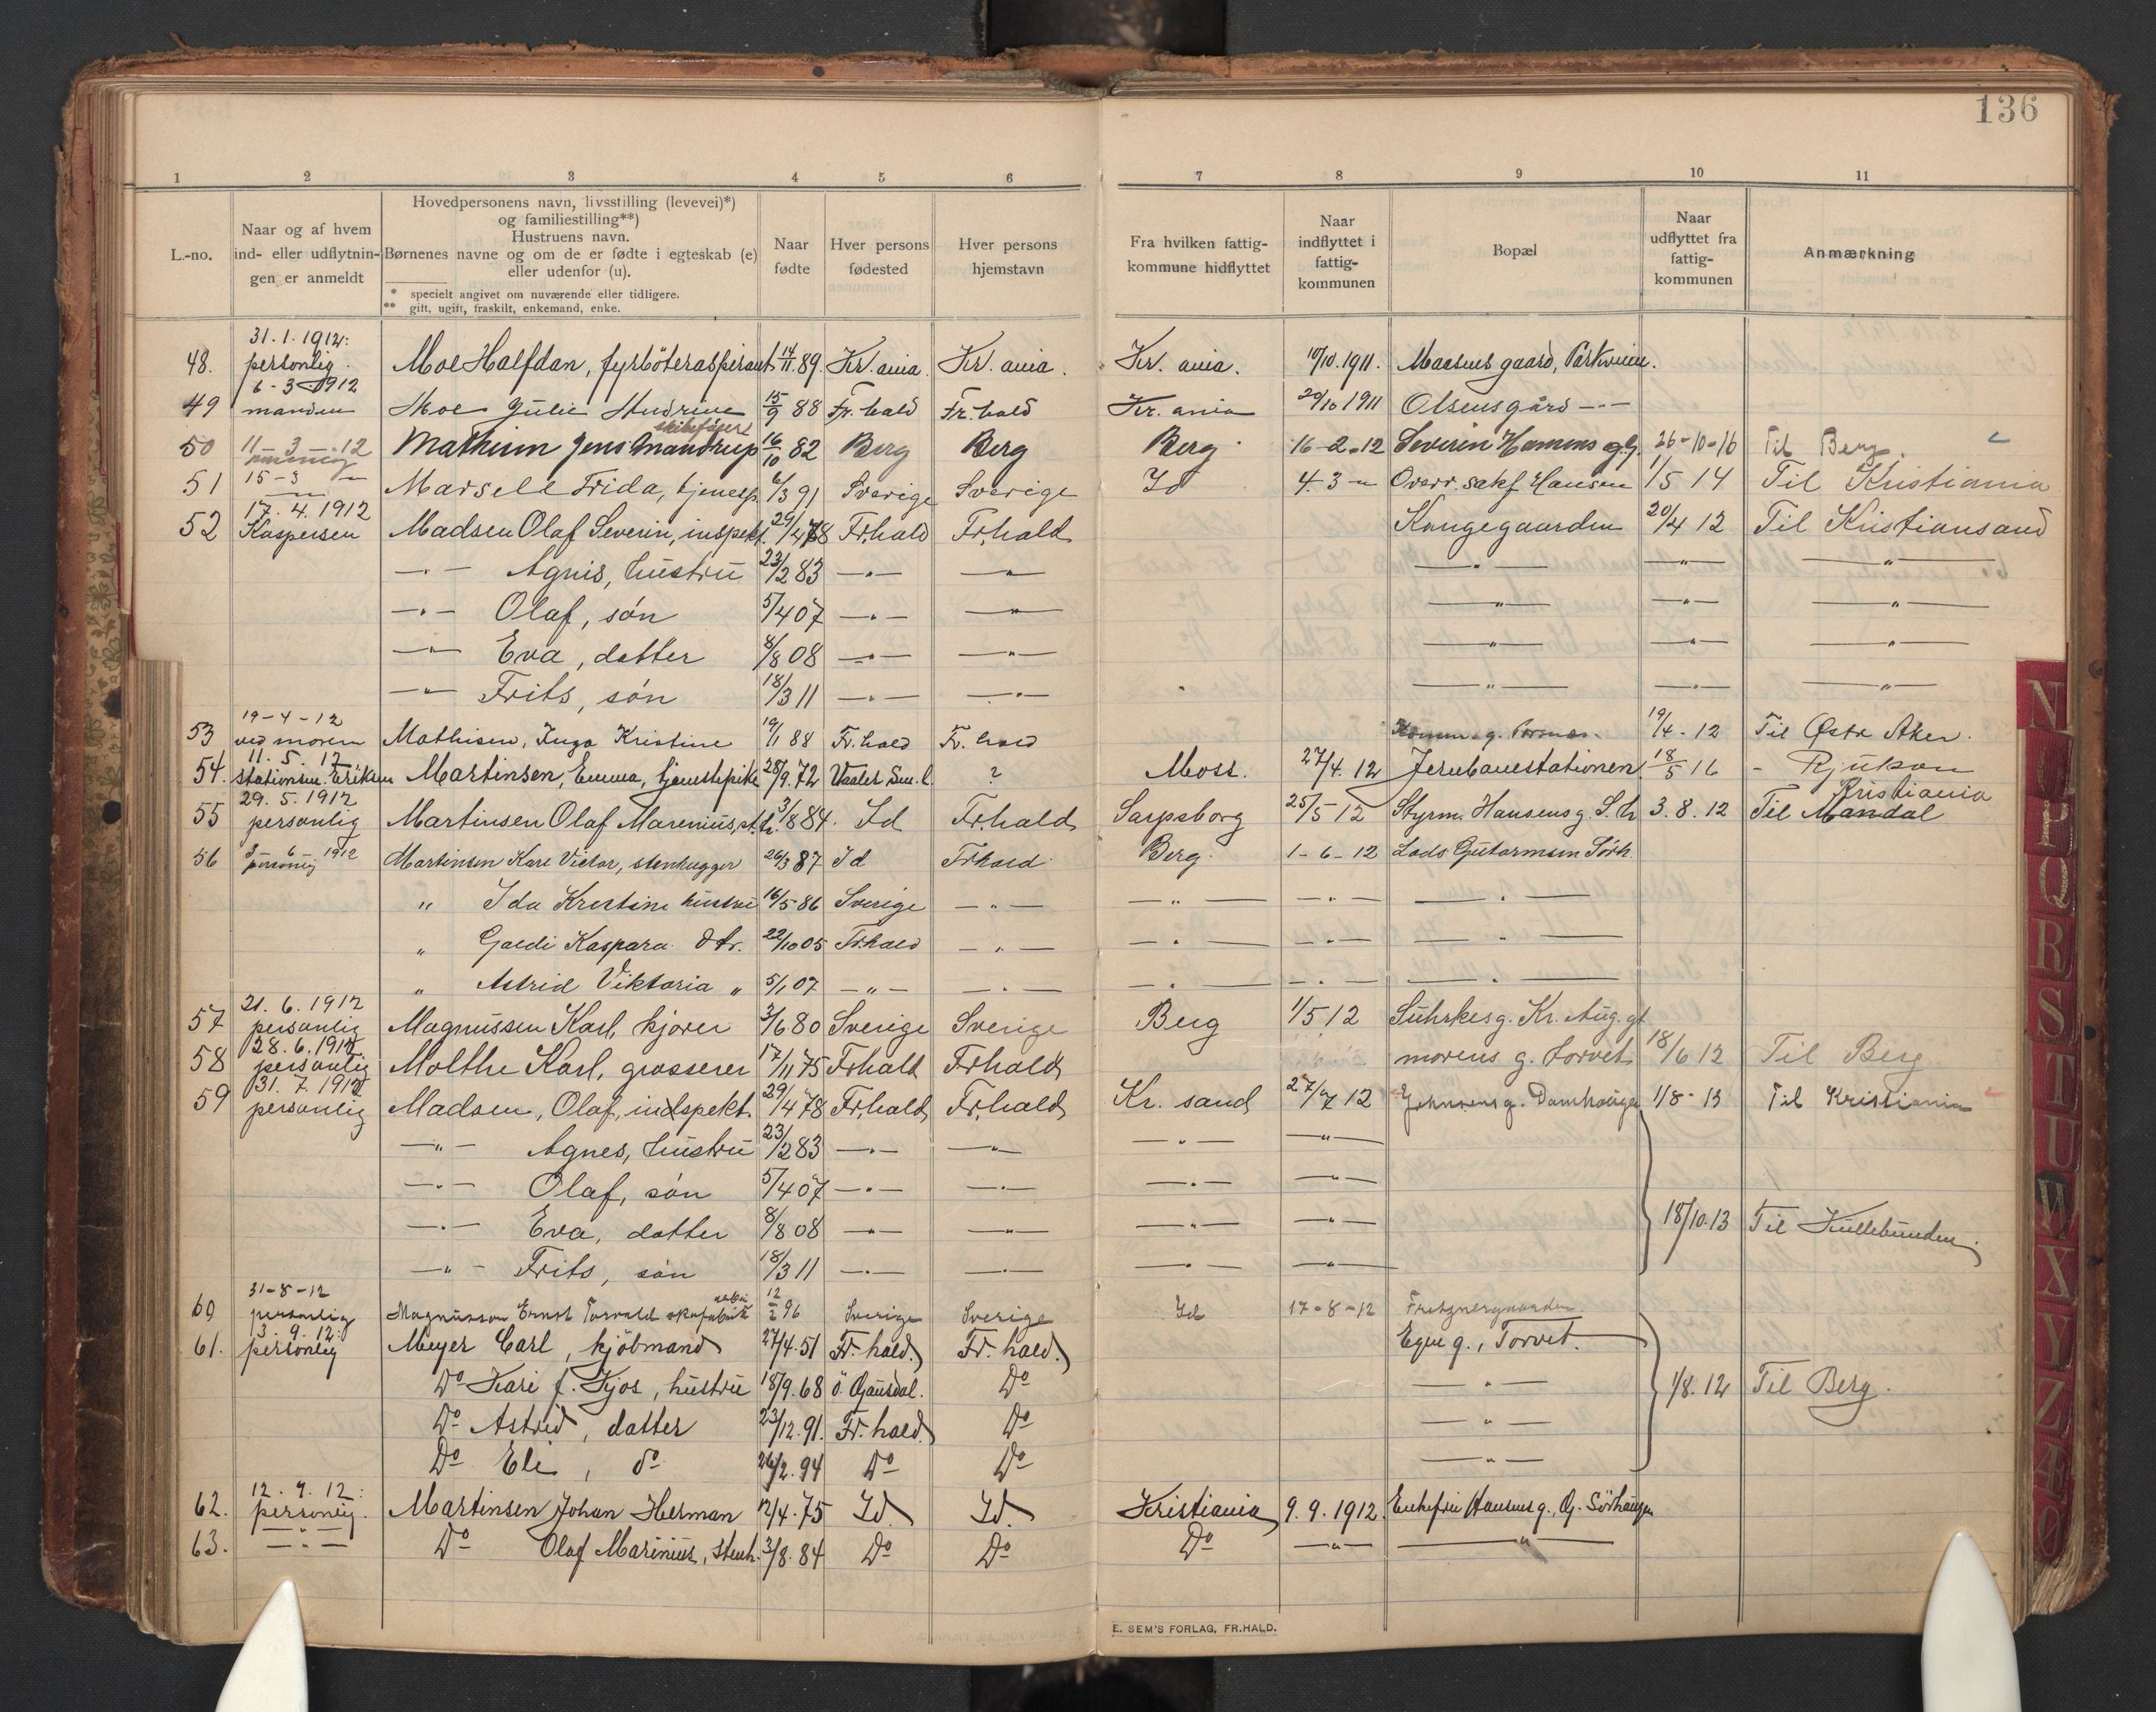 136
1 2 3 4 5 6 7 8 9 10 11
L.-no.
Naar og af hvem ind- eller udflytningen er anmeldt
Hovedpersonens navn, livsstilling (levevei)*) og familiestilling**)
Hustruens navn.
Børnenes navne og om de er fødte i egteskab (e) eller udenfor (u).
* specielt angivet om nuværende eller tidligere.
** gift, ugift, fraskilt, enkemand, enke.
Naar fødte
Hver persons fødested
Hver persons hjemstavn
Fra hvilken fattigkommune hidflyttet
Naar indflyttet i fattigkommunen
Bopæl
Naar udflyttet fra fattigkommunen
Anmærkning
31.1.1912:
48. personlig. Moe Halfdan, fyrböteraspirant 14/11.89. Kr.ania. Kr.ania. Kr.ania. 10/10.1911. Maasens gaard, Parkveien.
6-3-1912
49 manden Moe Julie Andrine 15/9 88 Fr.hald Fr.hald Kr.ania 20/10 1911 Olsensgård -"-
50 11-3-12 Mathisen Jens Mandrup 16/10 82 Berg Berg Berg 16-2-12 Severin Hansens g. 26-10-16 Til Berg.
51 15-3 -"- Marsele Frida, tjenesp. 6/3 91 Sverige Sverige Id 4-3-" Overr. sakf. Hansen 1/5 14 Til Kristiania
17.4.1912
52 Kaspersen Madsen Olaf Severin, inspekt. 29/4 78 Fr.hald Fr.hald Kongegaarden 20/4 12 Til Kristiansand
-"- Agnis, hustru 23/2 83 -"- -"- -"- -"- -"-
-"- Olaf, sön 5/4 07 -"- -"- -"- -"- -"-
-"- Eva, datter 8/8 08 -"- -"- -"- -"- -"-
-"- Frits, sön 18/3 11 -"- -"- -"- -"- -"-
19-4-12
53 ved moren Mathisen, Inga Kristine 19/1 88 Fr.hald Fr.hald 19/4-12 Til Østr Aker.
11.5.12
54. stationsm. Eriksen Martinsen, Emma, tjenestepike 28/9.72 Vaaler Sm.l. ? Moss. 27/4.12 Jernbanestationen 18/5 16 - Rjukan
29.5.1912 Kristiania
55 personlig Martinsen Olaf Marenius, st.h. 3/8 84. Id Fr.hald Sarpsborg 25/5-12 Styrm. Hansens g. S.h 3.8.12 Til Mandal
56 3-6-1912 personlig Martinsen Karl Victor, stenhugger 26/3 87 Id Frhald Berg. 1-6-12 Lods Gutormsen Sörh.
" Ida Kristine hustru 16/5 86 Sverige -"- -"- -"- -"-
" Kaspara dtr. 22/10 05 Fr.hald -"- -"- -"- -"-
" Astrid Viktoria " 5/1 07 -"- -"- -"- -"- -"-
21.6.1912
57 personlig Magnussen Karl, kjörer 3/6 80 Sverige Sverige Berg 1/5 12 Suhrkes g. Kr. Aug. gt
28.6.1912
58 personlig Molthe Karl, grosserer 17/11 75 Frhald Frhald morens g. torvet 18/6 12 Til Berg
31.7.1912
59 personlig Madsen, Olaf, indspekt. 29/4 78 Fr.hald Fr.hald Kr.sand 27/7 12 Johnsens g. Damhaugen 1/8-13 Til Kristiania
-"- Agnes, hustru 23/2 83 -"- -"- -"- -"-
-"- Olaf, sön 5/4 07 -"- -"- -"- -"-
-"- Eva, datter 8/8 08 -"- -"- -"- -"- 18/10.13 Til Kullebunden.
-"- Frits, sön 18/3 11 -"- -"- -"- -"-
31-8-12
60 personlig Magnusson Ernst Torvald skofabrik 12/2 96 Sverige Sverige Id 17-8-12
3.9.12:
61. personlig Meyer Carl, kjöbmand 27/4.51 Fr.hald. Fr.hald. Egne g., Torvet.
Do Kari f. Kjos, hustru 18/9.68 ö. Gausdal. Do -"- 1/8.12 Til Berg.
Do Astrid, datter 23/12.91. Fr.hald. Do -"-
Do Eli, do 26/2.94 Do Do -"-
12.9.12:
62. personlig. Martinsen Johan Herman 12/4.75 Id. Id. Kristiania 9.9.1912. Enkefru Hansens g. G. Sörhaugen
63. -"- Do Olaf Marinius, stenh. 3/8.84 Do Do Do -"- -"-
E. SEM'S FORLAG, FR.HALD.
N O P Q R S T U W X Y Z Æ Ø